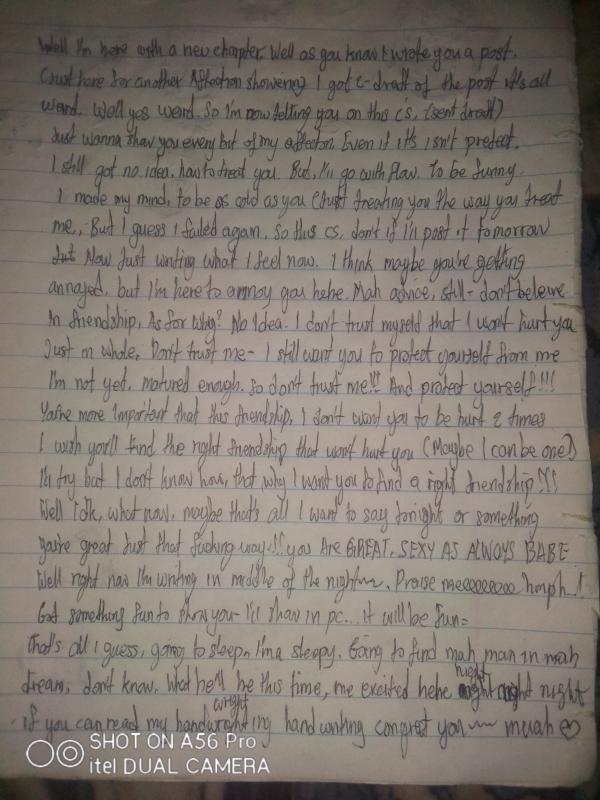 Well I'm here with a new chapter. Well as you know I wrote you a post.
(Just here for another Affection showering) I got c-draft of the post it's all
weird. Well yes weird. So I'm now telling you on this cs, (sent draft)
Just wanna show you every bit of my affection. Even if it's isn't protect.
I still got no idea, how to treat you. But, I'll go with flow. To be funny
I made my mind, to be as cold as you (Just treating you the way you treat
me,. But I guess I failed again, So this cs, don't if I'll post it tomorrow
but Now Just writing what I feel now. I think maybe you're getting
annoyed, but I'm here to annoy you hehe. Mah advice, still- don't beleive
In friendship, As for why? No Idea. I don't trust myself that I won't hurt you
Just in whole, Don't trust me- I still want you to protect yourself from me
I'm not yet, matured enough. so don't trust me!!! And protect yourself!!!
You're more important that this friendship, I don't want you to be hurt 2 times
I wish you'll find the right friendship that won't hurt you (Maybe I can be one!)
I'll try but I don't know how, that why I want you to find a right friendship!!!
Well Idk, what now, maybe that's all I want to say tonight or something
you're great Just that fucking way!! you Are GREAT, SEXY AS ALWAYS BABE
Well right now I'm writing in middle of the night~. Praise meeeeeeeee hmph!!
Got something fun to show you- I'll show in pc... it will be fun=
that's all I guess, going to sleep. I'm a sleepy. Going to find mah man in mah
dream, don't know, what he'll be this time, me excited hehe night night night
if you can read my handwrighting hand writing congrat you~~ muah ♡
SHOT ON A56 Pro
itel DUAL CAMERA